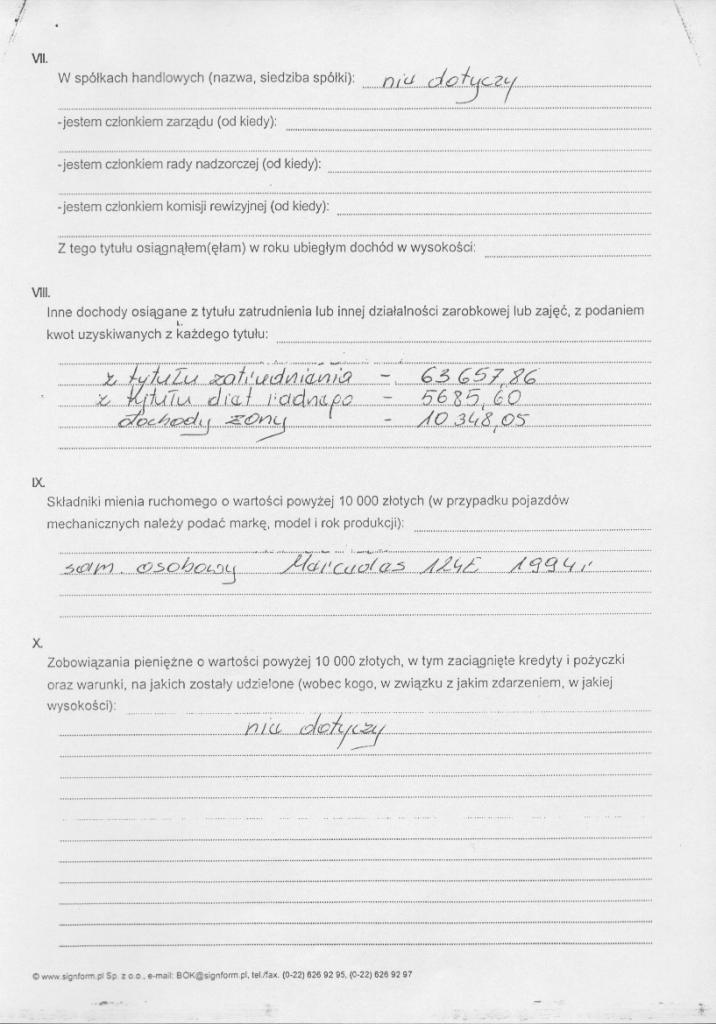 VII.
W spółkach handlowych (nazwa, siedziba spółki): nie dotyczy
-jestem członkiem zarządu (od kiedy):
-jestem członkiem rady nadzorczej (od kiedy):
-jestem członkiem komisji rewizyjnej (od kiedy):
Z tego tytułu osiągnąłem(ęłam) w roku ubiegłym dochód w wysokości:
VIII.
Inne dochody osiągane z tytułu zatrudnienia lub innej działalności zarobkowej lub zajęć, z podaniem
kwot uzyskiwanych z każdego tytułu:
z tytułu zatrudnienia - 63 657,86
z tytułu diet radnego - 5685,60
dochody żony - 10 348,05
IX.
Składniki mienia ruchomego o wartości powyżej 10 000 złotych (w przypadku pojazdów
mechanicznych należy podać markę, model i rok produkcji):
sam. osobowy Mercedes 124E 1994r
X.
Zobowiązania pieniężne o wartości powyżej 10 000 złotych, w tym zaciągnięte kredyty i pożyczki
oraz warunki, na jakich zostały udzielone (wobec kogo, w związku z jakim zdarzeniem, w jakiej
wysokości):
nie dotyczy
© www.signform.pl Sp. z o.o., e-mail: BOK@signform.pl, tel./fax. (0-22) 626 92 95, (0-22) 626 92 97